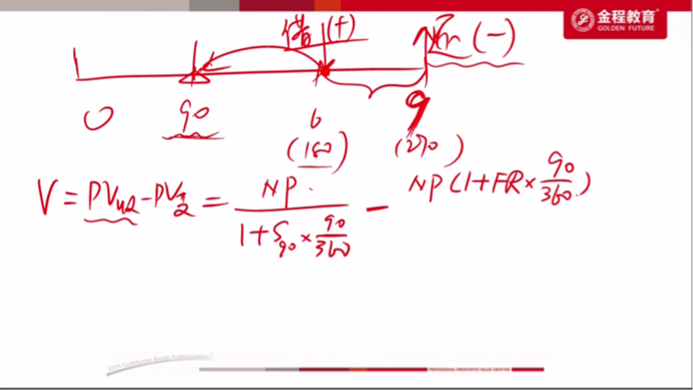 金程教育
GOLDEN FUTURE
借(+)
还(-)
0 90 6 9
(180) (270)
V = PV收 - PV付 = NP / (1 + S90 × 90/360) - NP(1 + FR × 90/360)